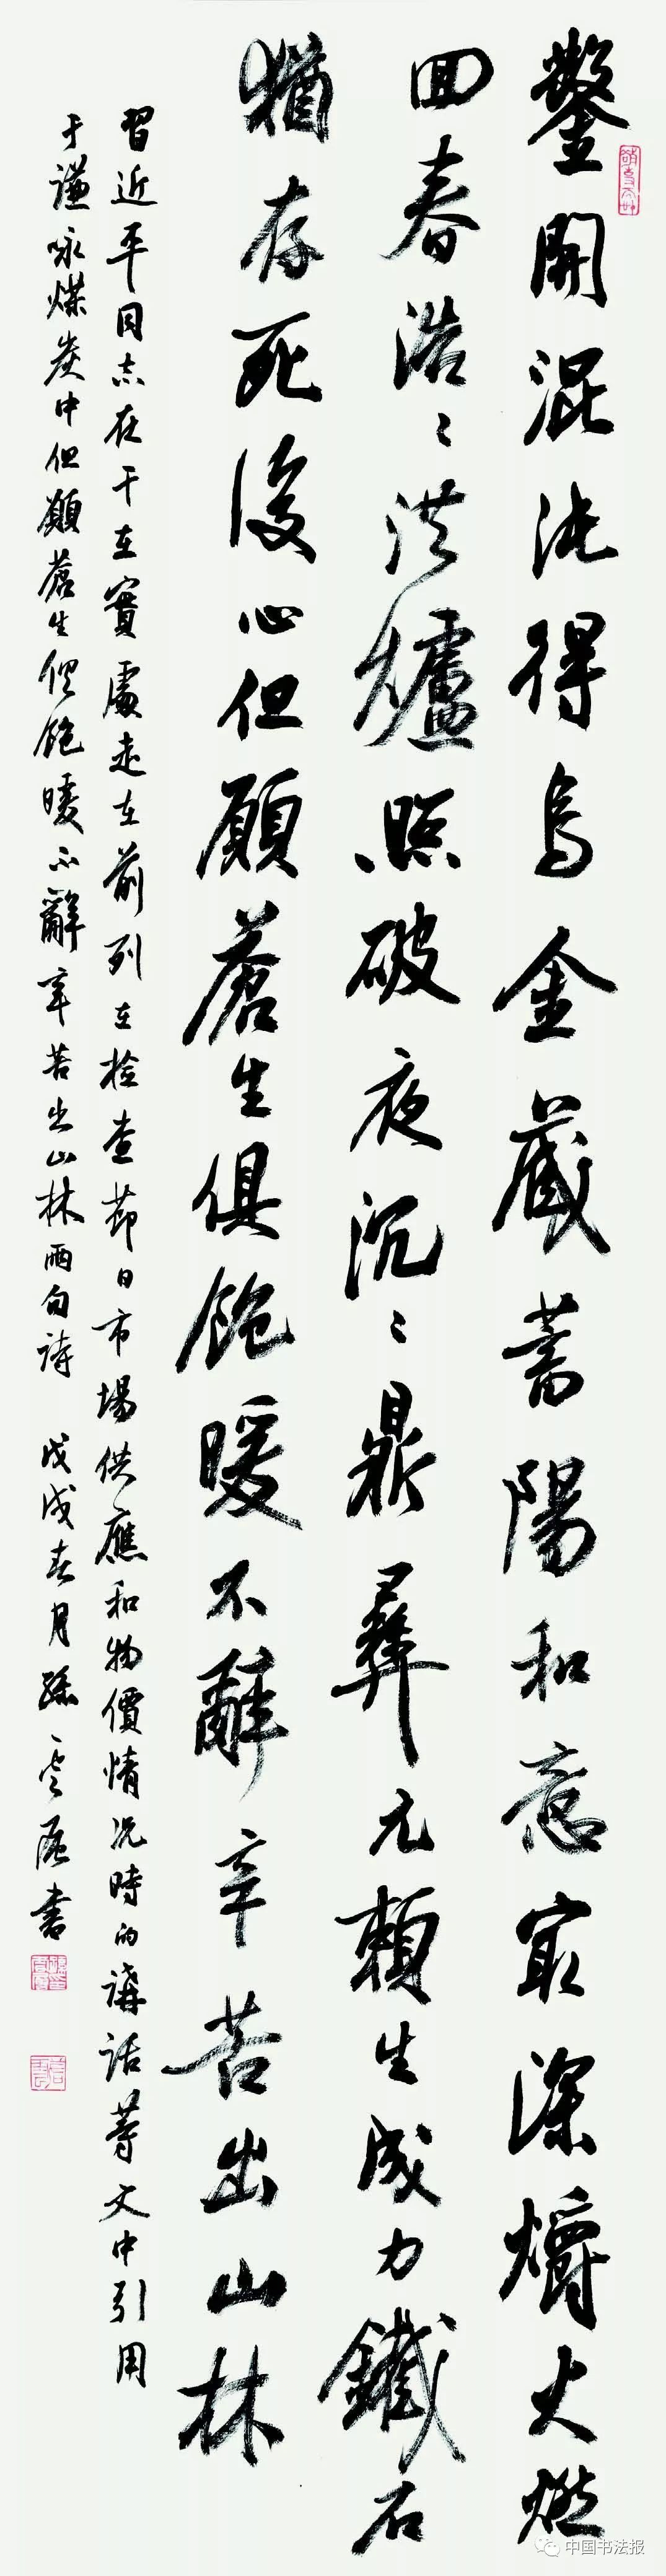 鑿開混沌得烏金藏蓄陽和意最深爝火燃
回春浩〻洪爐照破夜沉〻鼎彝元賴生成力鐵石
猶存死後心但願蒼生俱飽暖不辭辛苦出山林
習近平同志在干在實處走在前列在檢查節日市場供應和物價情況時的講話等文中引用
于謙咏煤炭中但願蒼生俱飽暖不辭辛苦出山林兩句詩 戊戌春月孫書
中国书法报